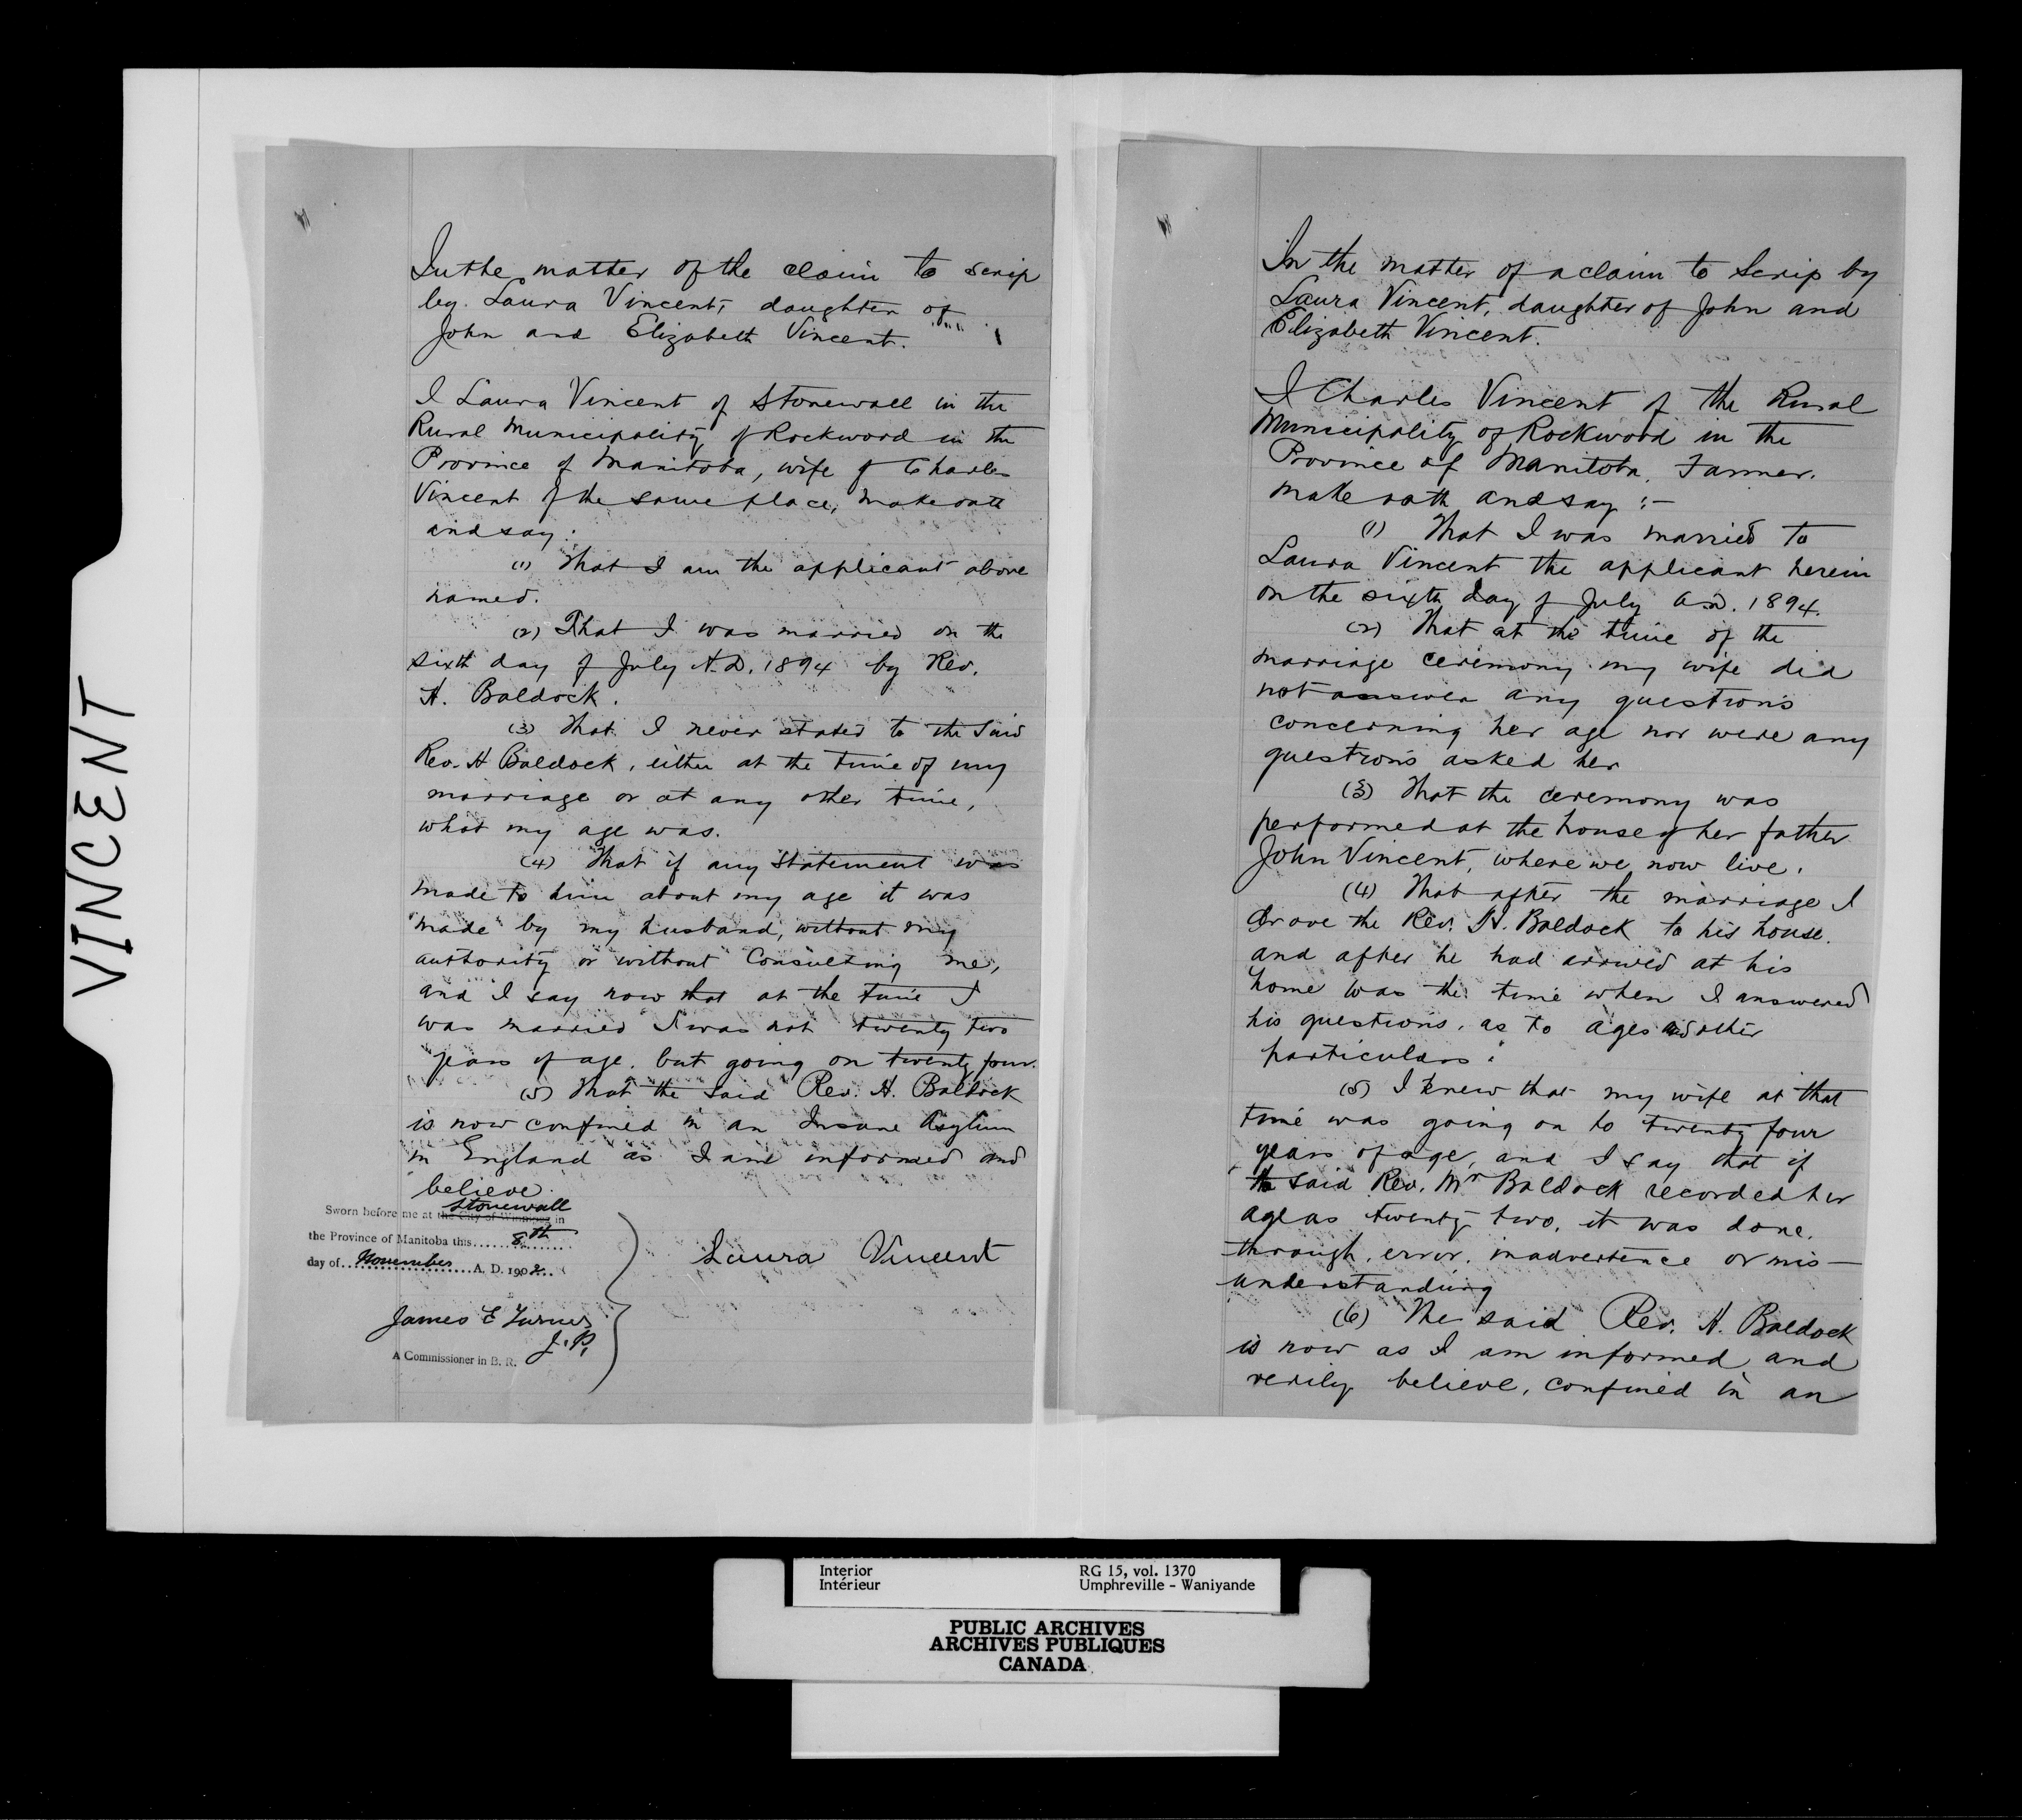 VINCENT
In the matter of the claim to scrip
by Laura Vincent, daughter of
John and Elizabeth Vincent.
I Laura Vincent of Stonewall in the
Rural Municipality of Rockwood in the
Province of Manitoba, wife of Charles
Vincent of the same place, make oath
and say:
(1) That I am the applicant above
named.
(2) That I was married on the
sixth day of July A.D. 1894 by Rev.
H. Baldock.
(3) That I never stated to the said
Rev. H Baldock, either at the time of my
marriage or at any other time,
what my age was.
(4) That if any statement was
made to him about my age it was
made by my husband, without my
authority or without consulting me,
and I say now that at the time I
was married I was not twenty two
years of age, but going on twenty four.
(5) That the said Rev. H. Baldock
is now confined in an Insane Asylum
in England as I am informed and
believe.
Stonewall
Sworn before me at the City of Winnipeg in
the Province of Manitoba this 8th
day of November A. D. 1902
Laura Vincent
James E Turner
J.P.
A Commissioner in B. R.
In the matter of a claim to Scrip by
Laura Vincent, daughter of John and
Elizabeth Vincent.
I Charles Vincent of the Rural
Municipality of Rockwood in the
Province of Manitoba, Farmer.
make oath and say :-
(1) That I was married to
Laura Vincent the applicant herein
on the sixth day of July A.D. 1894.
(2) That at the time of the
marriage ceremony my wife did
not answer any questions
concerning her age nor were any
questions asked her
(3) That the ceremony was
performed at the house of her father
John Vincent, where we now live.
(4) That after the marriage I
drove the Rev. H. Baldock to his house.
and after he had arrived at his
home was the time when I answered
his questions, as to ages and other
particulars.
(5) I knew that my wife at that
time was going on to twenty four
years of age, and I say that if
the said Rev. Mr Baldock recorded her
age as twenty two, it was done.
through, error, inadvertence or mis-
understanding
(6) The said Rev. H. Baldock
is now as I am informed and
verily believe, confined in an
Interior RG 15, vol. 1370
Intérieur Umphreville - Waniyande
PUBLIC ARCHIVES
ARCHIVES PUBLIQUES
CANADA